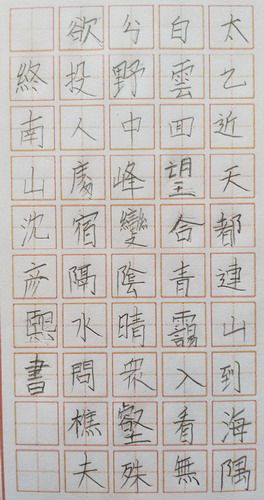 太乙近天都連山到海隅
白雲回望合青靄入看無
分野中峰變陰晴衆壑殊
欲投人處宿隔水問樵夫
終南山沈彦熙書